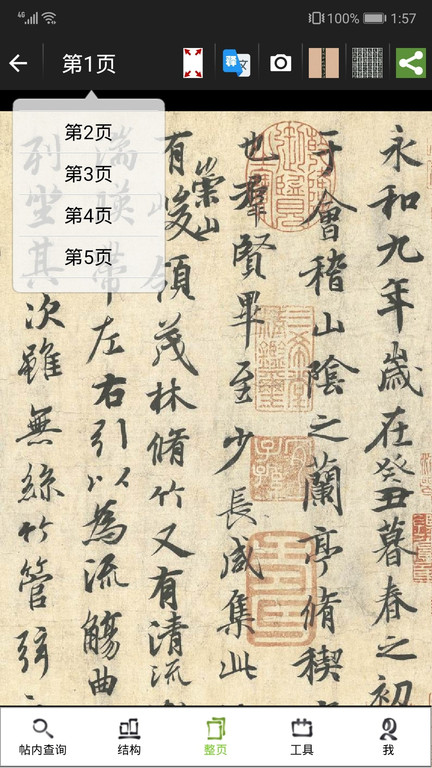 4G 100% 1:57
第1页
釋 文
第2页
第3页
第4页
第5页
永和九年歲在癸丑暮春之初
于會稽山陰之蘭亭脩禊
也羣賢畢至少長咸集此
有崇山峻領茂林脩竹又有清流
湍暎帶左右引以為流觴曲
列坐其次雖無絲竹管弦
帖内查询
结构
整页
工具
我